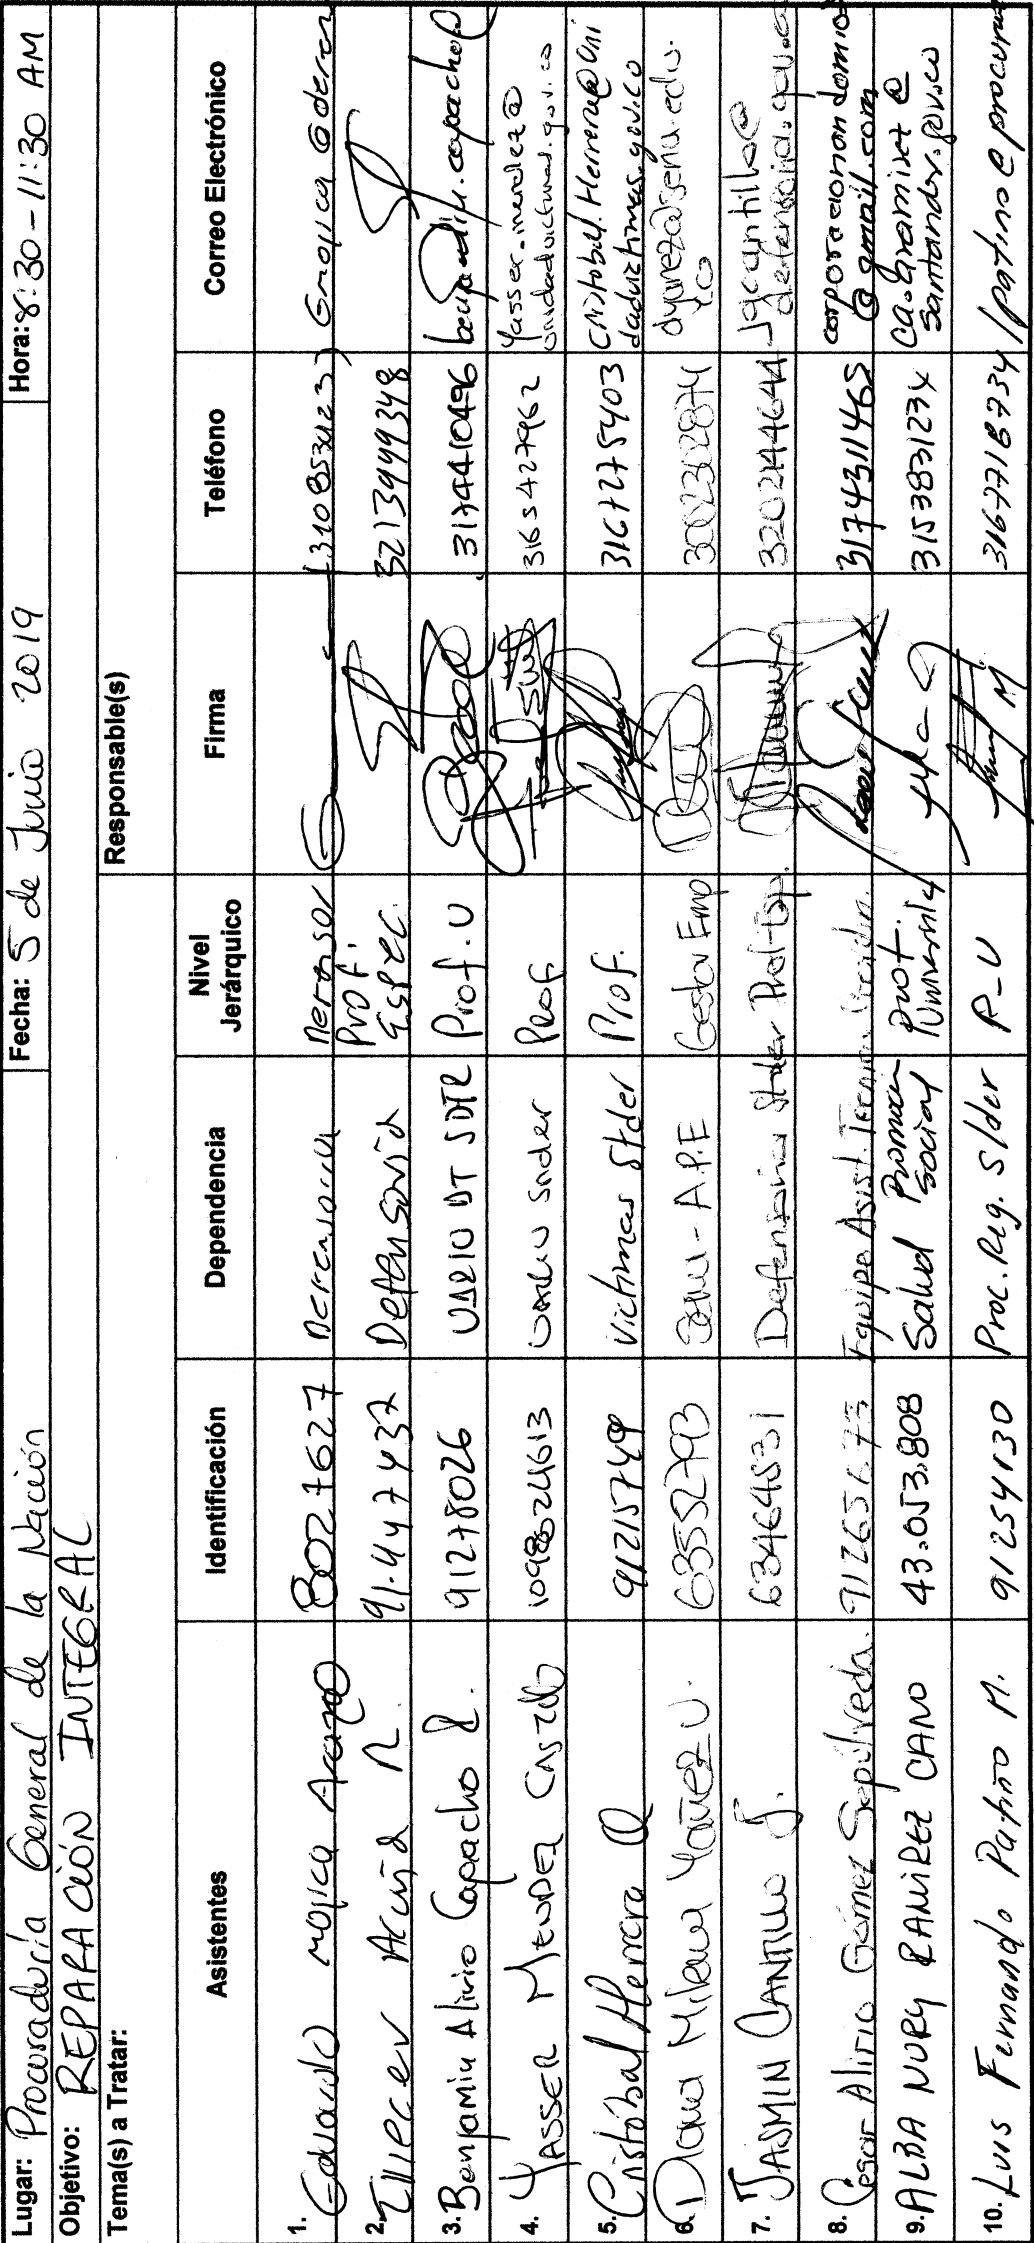 Lugar: Procuraduría General de la Nación Fecha: 5 de Junio 2019 Hora: 8:30 - 11:30 AM
Objetivo: REPARACIÓN INTEGRAL
Tema(s) a Tratar: Responsable(s)
Asistentes Identificación Dependencia Nivel Jerárquico Firma Teléfono Correo Electrónico
1. Eduardo Mojica 8027627 3108534237
2. Eliecer Acuña R. 91.447437 Defensoria Prof. Espec. 3213999348
3. Benjamin Alirio Capacho R. 91278026 Prof. U 3174410496
4. YASSER MENDEZ CASTILLO 1098624613 Snder Prof 3165427962 Yasser.mendez@ unidadvictimas.gov.co
5. Cristóbal Herrera 91215749 Victimas Stder Prof. 3167275403 Cristobal.Herrera@uni dadvictimas.gov.co
6. Diana Milena Yañez U. 63552793 Sena - A.P.E Gestor Emp 3002302874 dyanez@sena.edu. co
7. JASMIN CANTILLO J. 63464531 Defensoria Stder Prof-Esp. 3202144644 jacantillo@ defensoria.gov.co
8. Cesar Alirio Gómez Sepúlveda. Equipo Asist. 3174311465 @gmail.com
9. ALBA NURY RAMIREZ CANO 43.053.808 Salud Promocion Social Prof. 315383123X ca.gramirez@ santander.gov.co
10. Luis Fernando Patiño M. 91254130 Proc. Reg. S/der P-U 3167718734 lpatino@procura